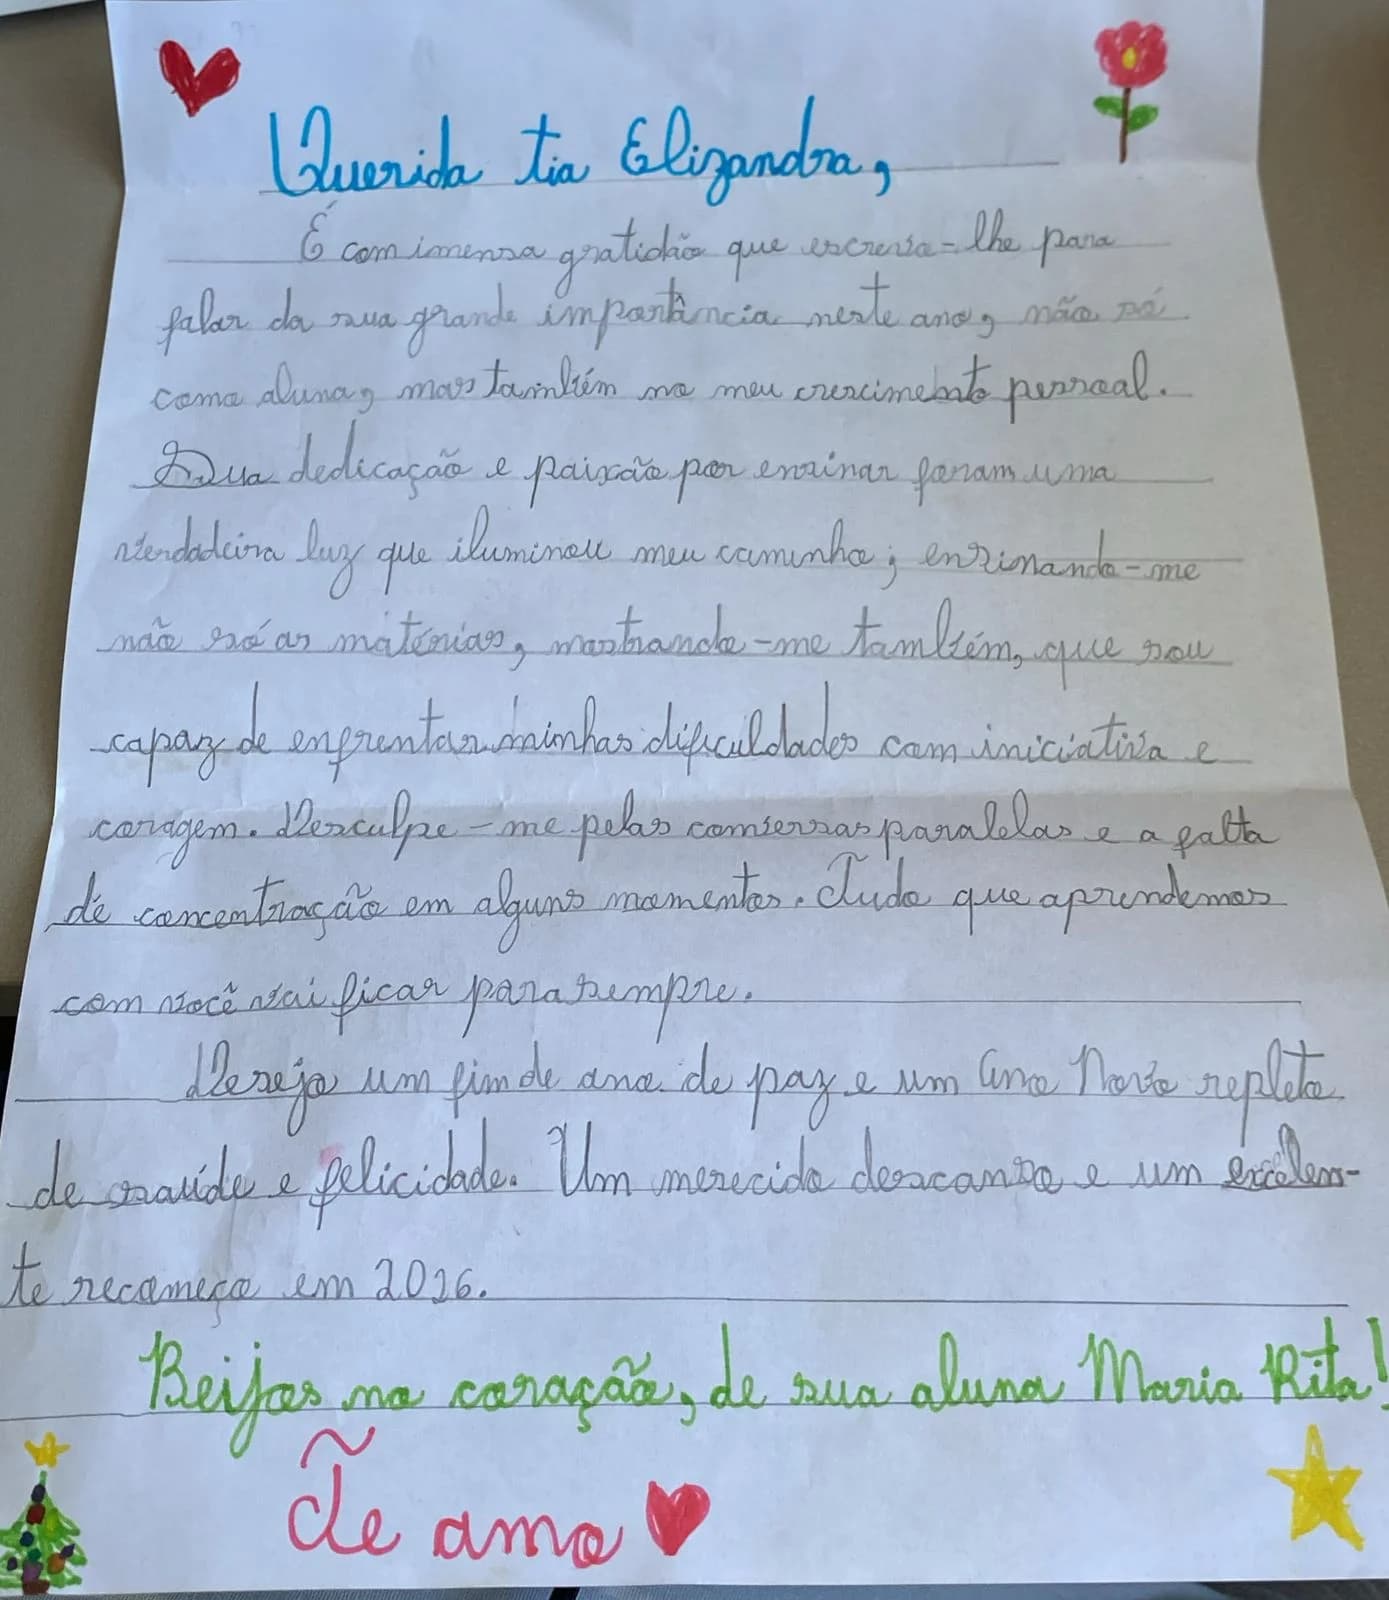 Querida tia Elizandra,
É com imensa gratidão que escrevo-lhe para
falar da sua grande importância neste ano, não só
como aluna, mas também no meu crescimento pessoal.
Sua dedicação e paixão por ensinar foram uma
verdadeira luz que iluminou meu caminho; ensinando-me
não só as matérias, mostrando-me também, que sou
capaz de enfrentar minhas dificuldades com iniciativa e
coragem. Desculpe-me pelas conversas paralelas e a falta
de concentração em alguns momentos. Tudo que aprendemos
com você vai ficar para sempre.
Desejo um fim de ano de paz e um Ano Novo repleto
de saúde e felicidade. Um merecido descanso e um excelen-
te recomeço em 2026.
Beijos no coração, de sua aluna Maria Rita!
Te amo